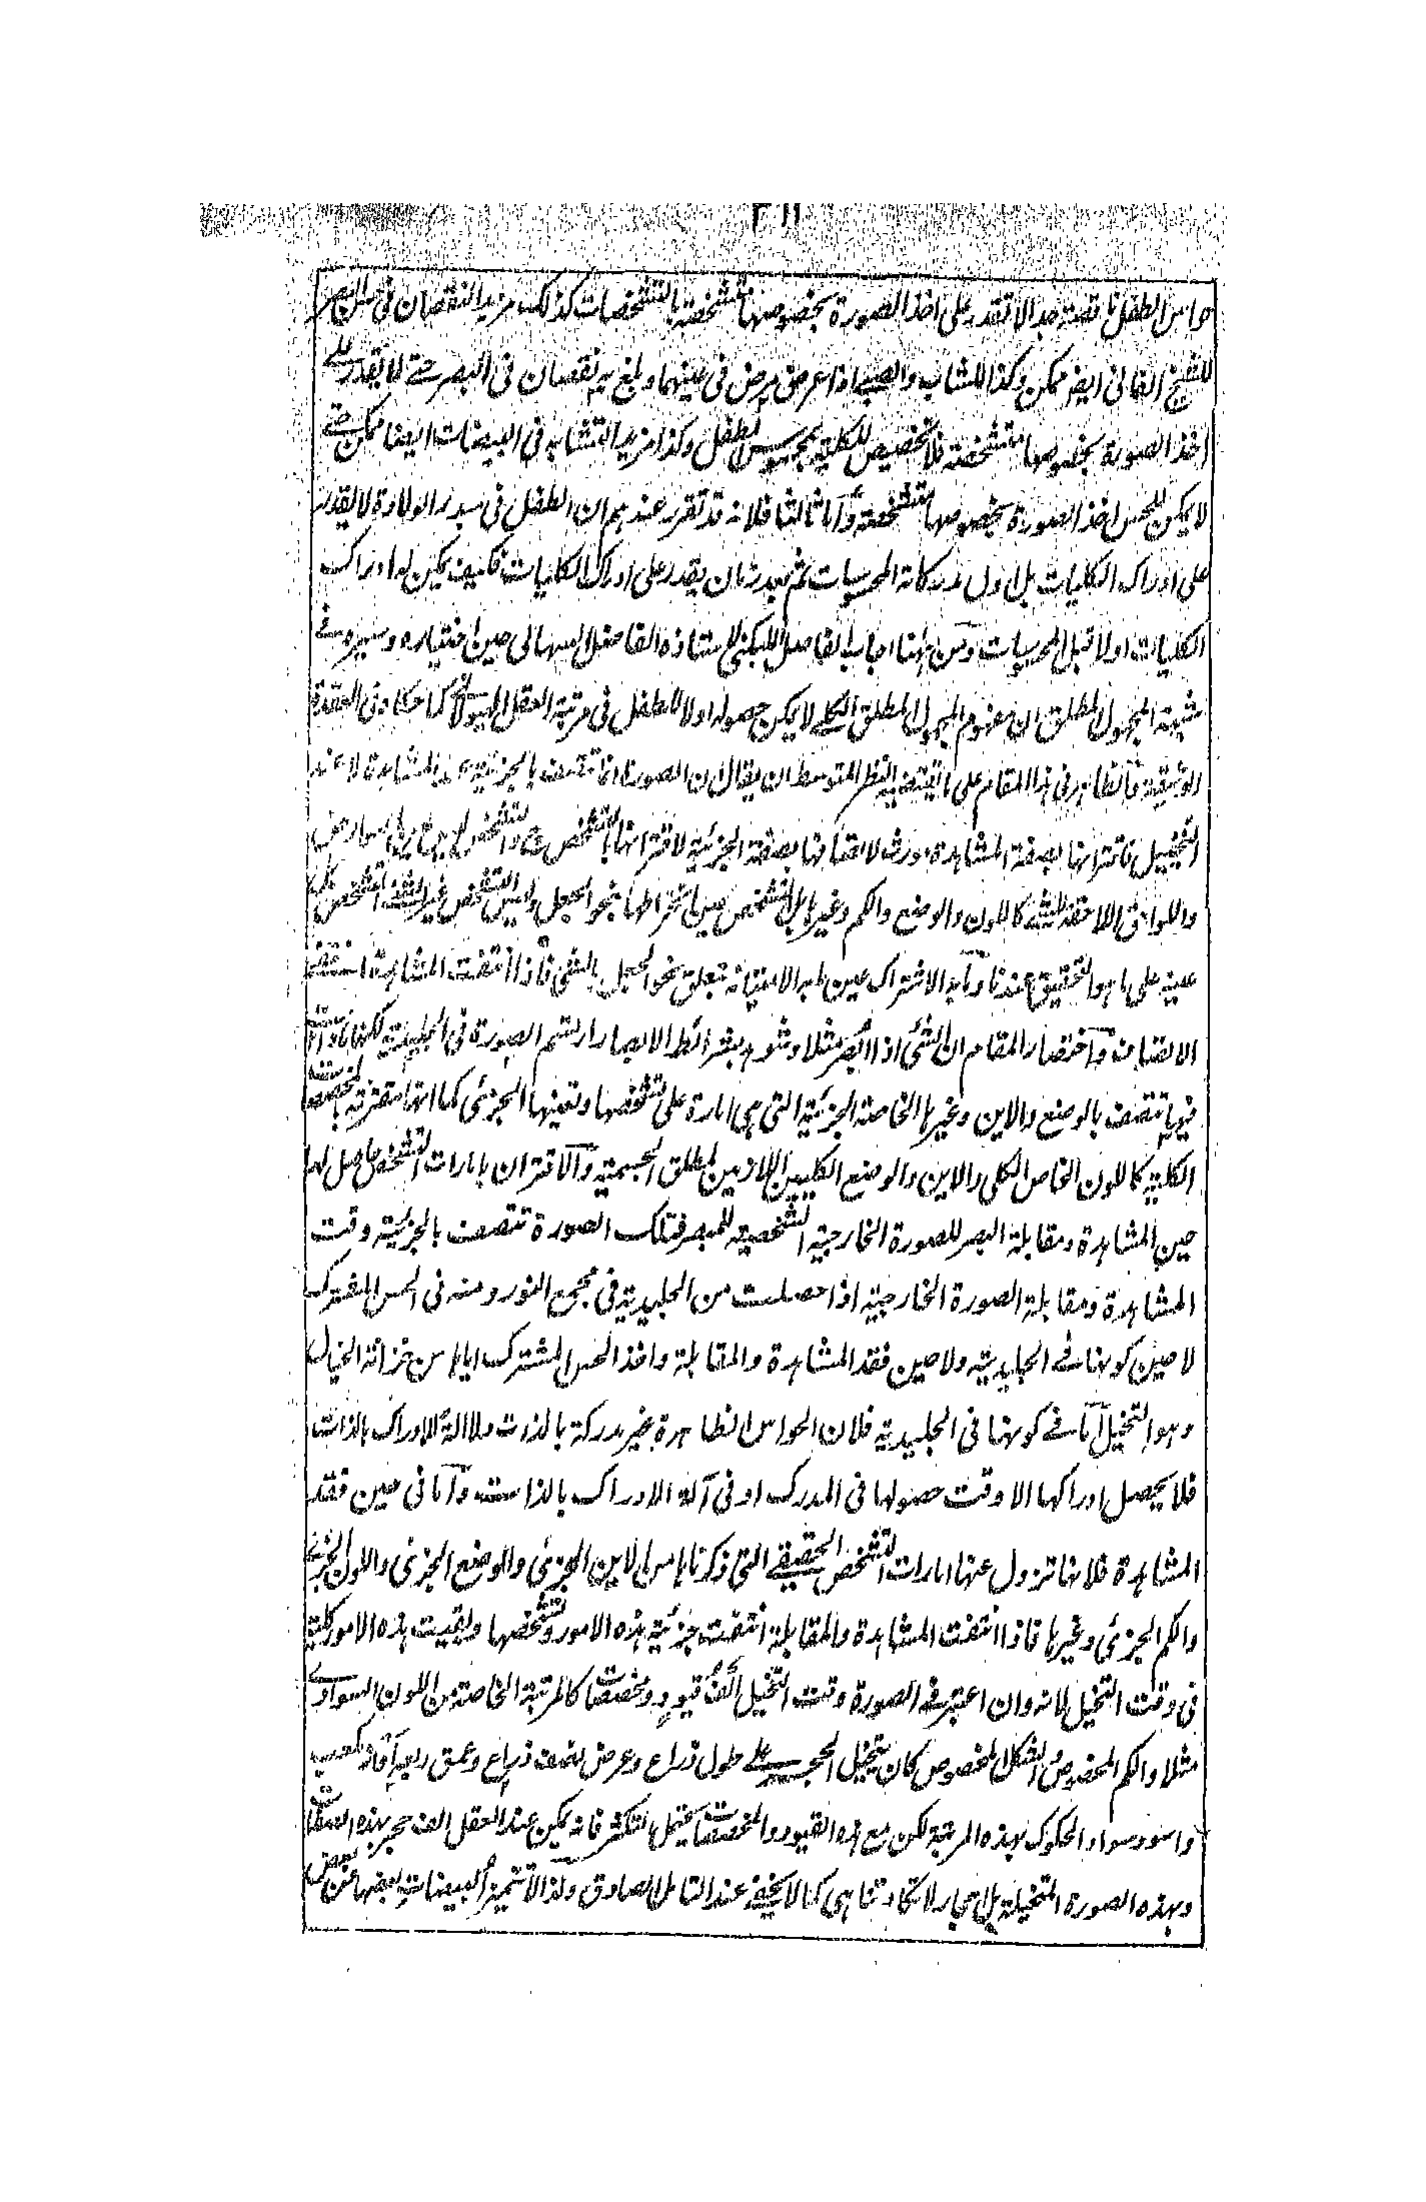 حواس الطفل ناقصة جدا لا تقدر على اخذ الصورة بخصوصها متشخصة بالتشخصات كذلك مزيد النقصان فى حس البصر
للشيخ الفانى ايضا ممكن وكذا للشاب والصبى اذا عرض مرض فى عينهما وبلغ به نقصان فى البصر حتى لا يقدر على
اخذ الصورة بخصوصها متشخصة فلا تخصيص للكلية بمحسوس الطفل وكذا مزيد التشابه فى البيضات ايضا ممكن حتى
لا يمكن للحس اخذ الصورة بخصوصها متشخصة وأما ثالثا فلانه قد تقرر عندهم ان الطفل فى مبدء الولادة لا يقدر
على ادراك الكليات بل اول مدركاته المحسوسات ثم بعد زمان يقدر على ادراك الكليات فكيف يمكن له ادراك
الكليات اولا قبل المحسوسات ومن ههنا اجاب الفاضل اللبكنى لاستاذه الفاضل السهالى حين اختباره وسيره فى
شبهة المجهول المطلق ان مفهوم المجهول المطلق الكلى لا يمكن حصوله اولا للطفل فى مرتبة العقل الهيولانى كما حكاه فى العقدة
الوثيقة فالظاهر فى هذا المقام على ما يقتضيه النظر المتوسط ان يقال ان الصورة انما تتصف بالجزئية عند المشاهدة لا عند
التخييل فاقترانها بصفة المشاهدة مورث لاتصافها بصفة الجزئية لاقترانها بالتشخص والتشخص
واللواحق اللاحقة للشئ كاللون والوضع والكم وغيرها بل التشخص
عينه على ما هو التحقيق عندنا وما به الاشتراك عين ما به الامتياز تعلق نحو الجعل بالشئ فاذا انتفت المشاهدة انتفى
الاتصاف وآختصار المقام ان الشئ اذا ابصر مثلا وشوهد بشرائط الابصار ارتسم الصورة فى الجليدية
تتصف بالوضع والاين وغيرها الخاصة الجزئية التى هى امارة على تشخصها وتعينها الجزئى كما انها مقترنة بالمخصصات
الكلية كاللون الخاص الكلى والاين والوضع الكليين اللازمين لمطلق الجسمية وآلاقتران بامارات التشخص حاصل لها
حين المشاهدة ومقابلة البصر للصورة الخارجية الشخصية للمبصر فتلك الصورة تتصف بالجزئية وقت
المشاهدة ومقابلة الصورة الخارجية اذا حصلت من الجليدية فى مجمع النور ومنه فى الحس المشترك
لا حين كونها فى الجليدية ولا حين فقد المشاهدة والمقابلة واخذ الحس المشترك اياها من خزانة الخيال
وهو التخيل آما فى كونها فى الجليدية فلان الحواس الظاهرة غير مدركة بالذات ولا آلة للادراك بالذات
فلا يحصل ادراكها الا وقت حصولها فى المدرك او فى آلة الادراك بالذات وآما فى حين فقد
المشاهدة فلانها تزول عنها امارات التشخص الحقيقى التى ذكرناها من الاين الجزئى والوضع الجزئى واللون الجزئى
والكم الجزئى وغيرها فاذا انتفت المشاهدة والمقابلة انتفت جزئية هذه الامور وتشخصها وبقيت هذه الامور كلية
فى وقت التخيل لانه وان اعتبر فى الصورة وقت التخيل الف قيود ومخصصات كالمرتبة الخاصة من اللون السوادى
مثلا والكم المخصوص والشكل المخصوص كان يتخيل الحجر على طول ذراع وعرض نصف ذراع وعمق ربعه
واسود سواد المحكوك بهذه المرتبة لكن مع هذه القيود والمخصصات يحتمل التكثر فانه يمكن عند العقل الف حجر بهذه الصفات
وبهذه الصورة المتخيلة بل احجار لا تكاد تتناهى كما لا يخفى عند التامل الصادق ولذا لا تتميز البيضات بعضها عن بعض